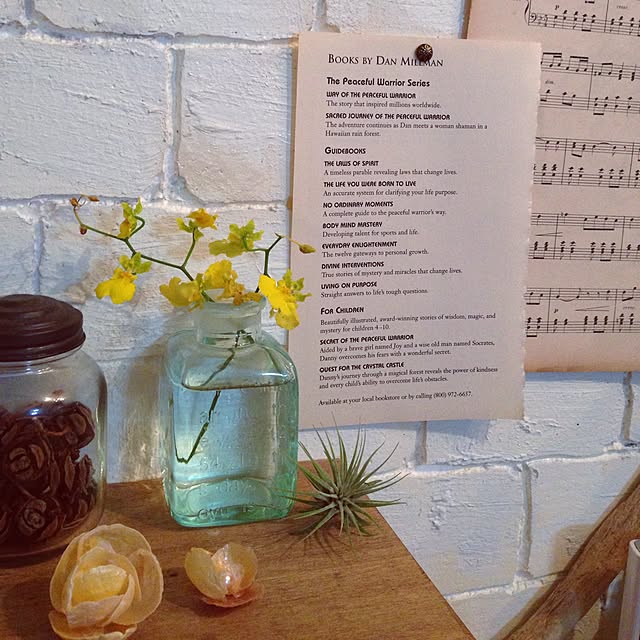 BOOKS BY DAN MILLMAN
The Peaceful Warrior Series
WAY OF THE PEACEFUL WARRIOR
The story that inspired millions worldwide.
SACRED JOURNEY OF THE PEACEFUL WARRIOR
The adventure continues as Dan meets a woman shaman in a
Hawaiian rain forest.
GUIDEBOOKS
THE LAWS OF SPIRIT
A timeless parable revealing laws that change lives.
THE LIFE YOU WERE BORN TO LIVE
An accurate system for clarifying your life purpose.
NO ORDINARY MOMENTS
A complete guide to the peaceful warrior's way.
BODY MIND MASTERY
Developing talent for sports and life.
EVERYDAY ENLIGHTENMENT
The twelve gateways to personal growth.
DIVINE INTERVENTIONS
True stories of mystery and miracles that change lives.
LIVING ON PURPOSE
Straight answers to life's tough questions.
FOR CHILDREN
Beautifully illustrated, award-winning stories of wisdom, magic, and
mystery for children 4–10.
SECRET OF THE PEACEFUL WARRIOR
Aided by a brave girl named Joy and a wise old man named Socrates,
Danny overcomes his fears with a wonderful secret.
QUEST FOR THE CRYSTAL CASTLE
Danny's journey through a magical forest reveals the power of kindness
and every child's ability to overcome life's obstacles.
Available at your local bookstore or by calling (800) 972-6657.
cresc.
dim.